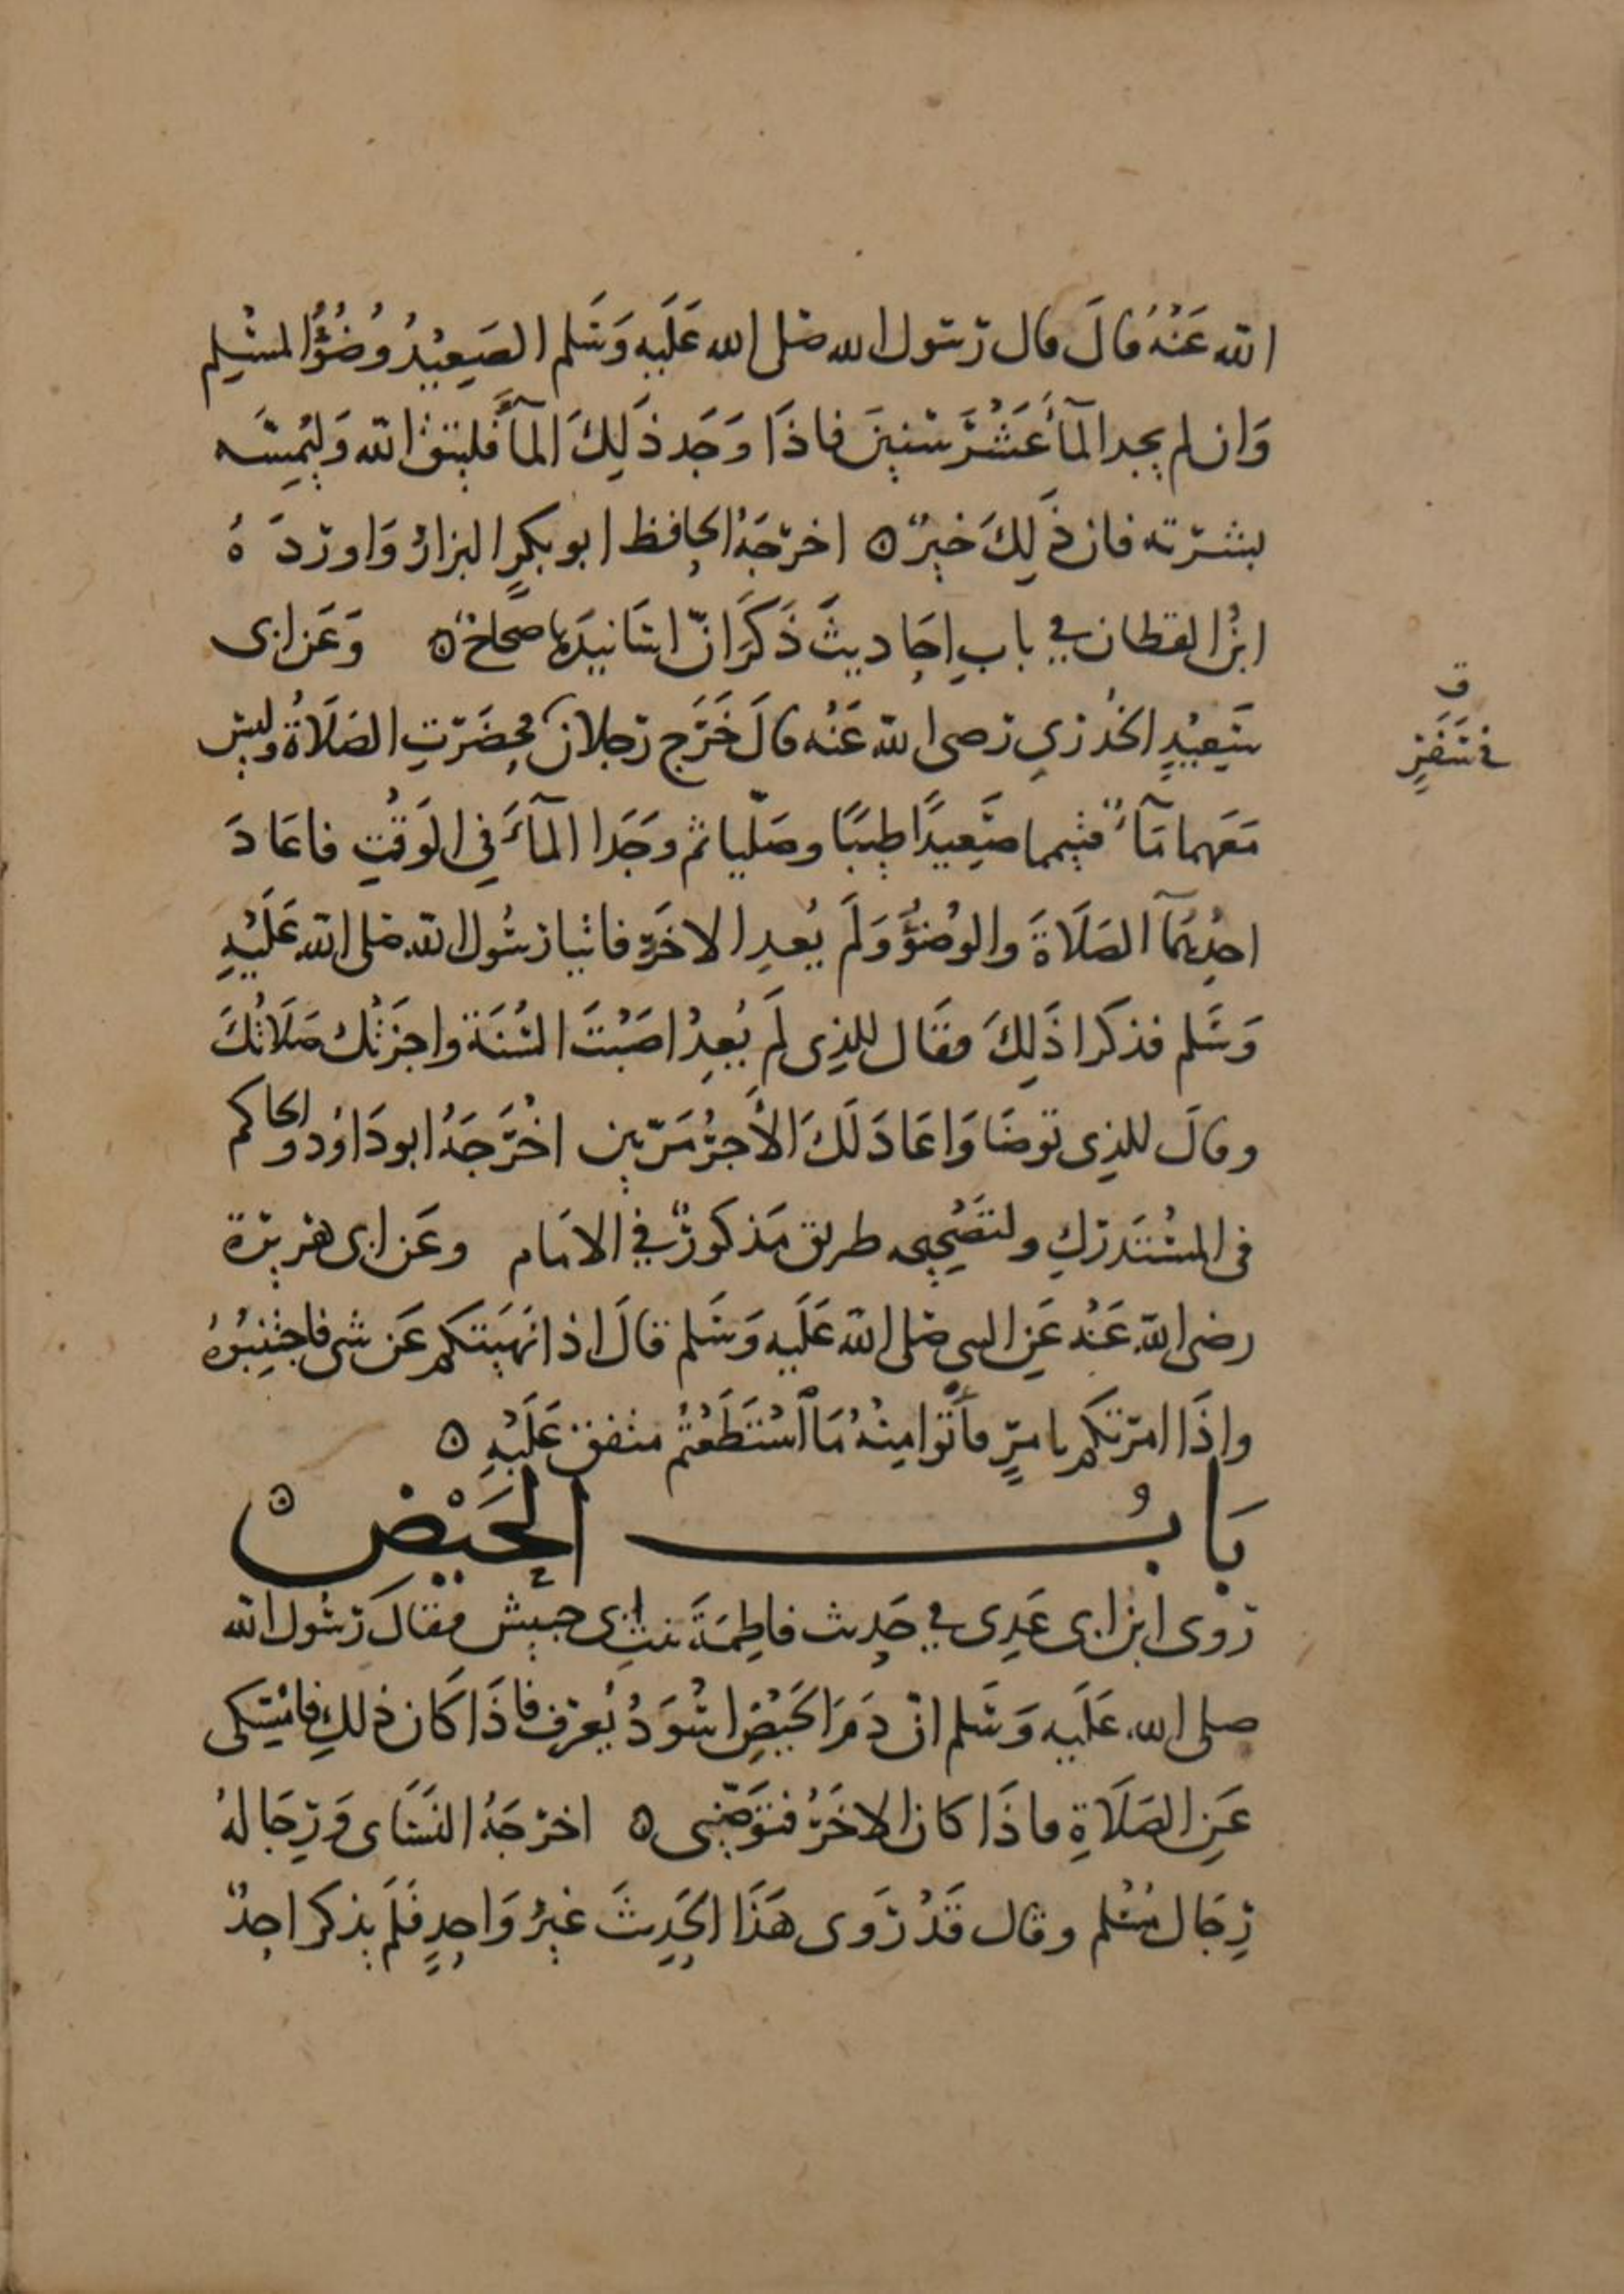 الله عَنْهُ قالَ قال رسول الله صلى الله عَلَيه وَسَلم الصَعِيْدُ وُضُوُ المسْلِم
وَان لم يجد المآءَ عَشْرَ سنينَ فاذَا وَجَد ذَلِكَ المآءَ فليتق الله وَليُمِسَّه
بشرته فان ذَلِكَ خيرٌ اخرجَهُ الحافظ ابو بكرٍ البزار وَاوردَهُ
ابنُ القطان في بابِ احَاديثَ ذَكَرَ انّ اسَانيدَها صحاحٌ وَعَن ابى
سَعِيْدٍ الخُدْرِي رضى الله عَنْه قالَ خَرَج رجلان فحضَرَتِ الصَلَاةُ وليس
مَعَهما مَآءٌ فتيمما صَعِيدًا طيبًا وصَلّيا ثم وَجَدا المآءَ فِي الوَقْتِ فاعَادَ
احدُهُمَآ الصَلَاةَ والوُضوُءَ وَلَم يُعدِ الاخَر فاتيا رسُول الله صلى الله عَلَيْهِ
وَسَلم فذكرا ذَلِكَ فقَال للذِى لَم يُعِدْ اصَبْتَ السُنَة واجزَتْكَ صَلَاتُكَ
وقالَ للذِى توضَا وَاعَادَ لَكَ الأجرُ مَرّتين اخْرَجَهُ ابو دَاوُد والحاكم
فى المسْتَدركِ ولتصْحِيحِه طريق مَذكورٌ في الامَام وعَن ابى هريرة
رضى الله عَنْه عَنِ النبى صلى الله عَلَيه وَسَلم قالَ اذا نَهيَتكم عَن شى فاجْتنِبُوهُ
واذَا امرتكم بامرٍ فأتوا مِنْهُ مَا اسْتَطَعْتُم متفق عَلَيْهِ
بَابُ الحَيْض
روى ابن ابى عَدِى في حَدِيث فاطِمَةَ بنتِ ابى حبيش فقالَ رسُول الله
صلى الله عَلَيه وَسَلم انّ دَمَ الحَيْضِ اسْوَدُ يُعرَف فاذَا كَان ذلكِ فامْسِكى
عَنِ الصَلَاةِ فاذَا كان الاخَرُ فتَوَضّئِى اخرجَهُ النَسَاى وَرِجَالهُ
رِجَال مُسْلم وقال قَدْ رَوى هَذَا الحَدِيثَ غيرُ وَاحِدٍ فَلَم يذكر احدٌ
ق
في سَفَرٍ